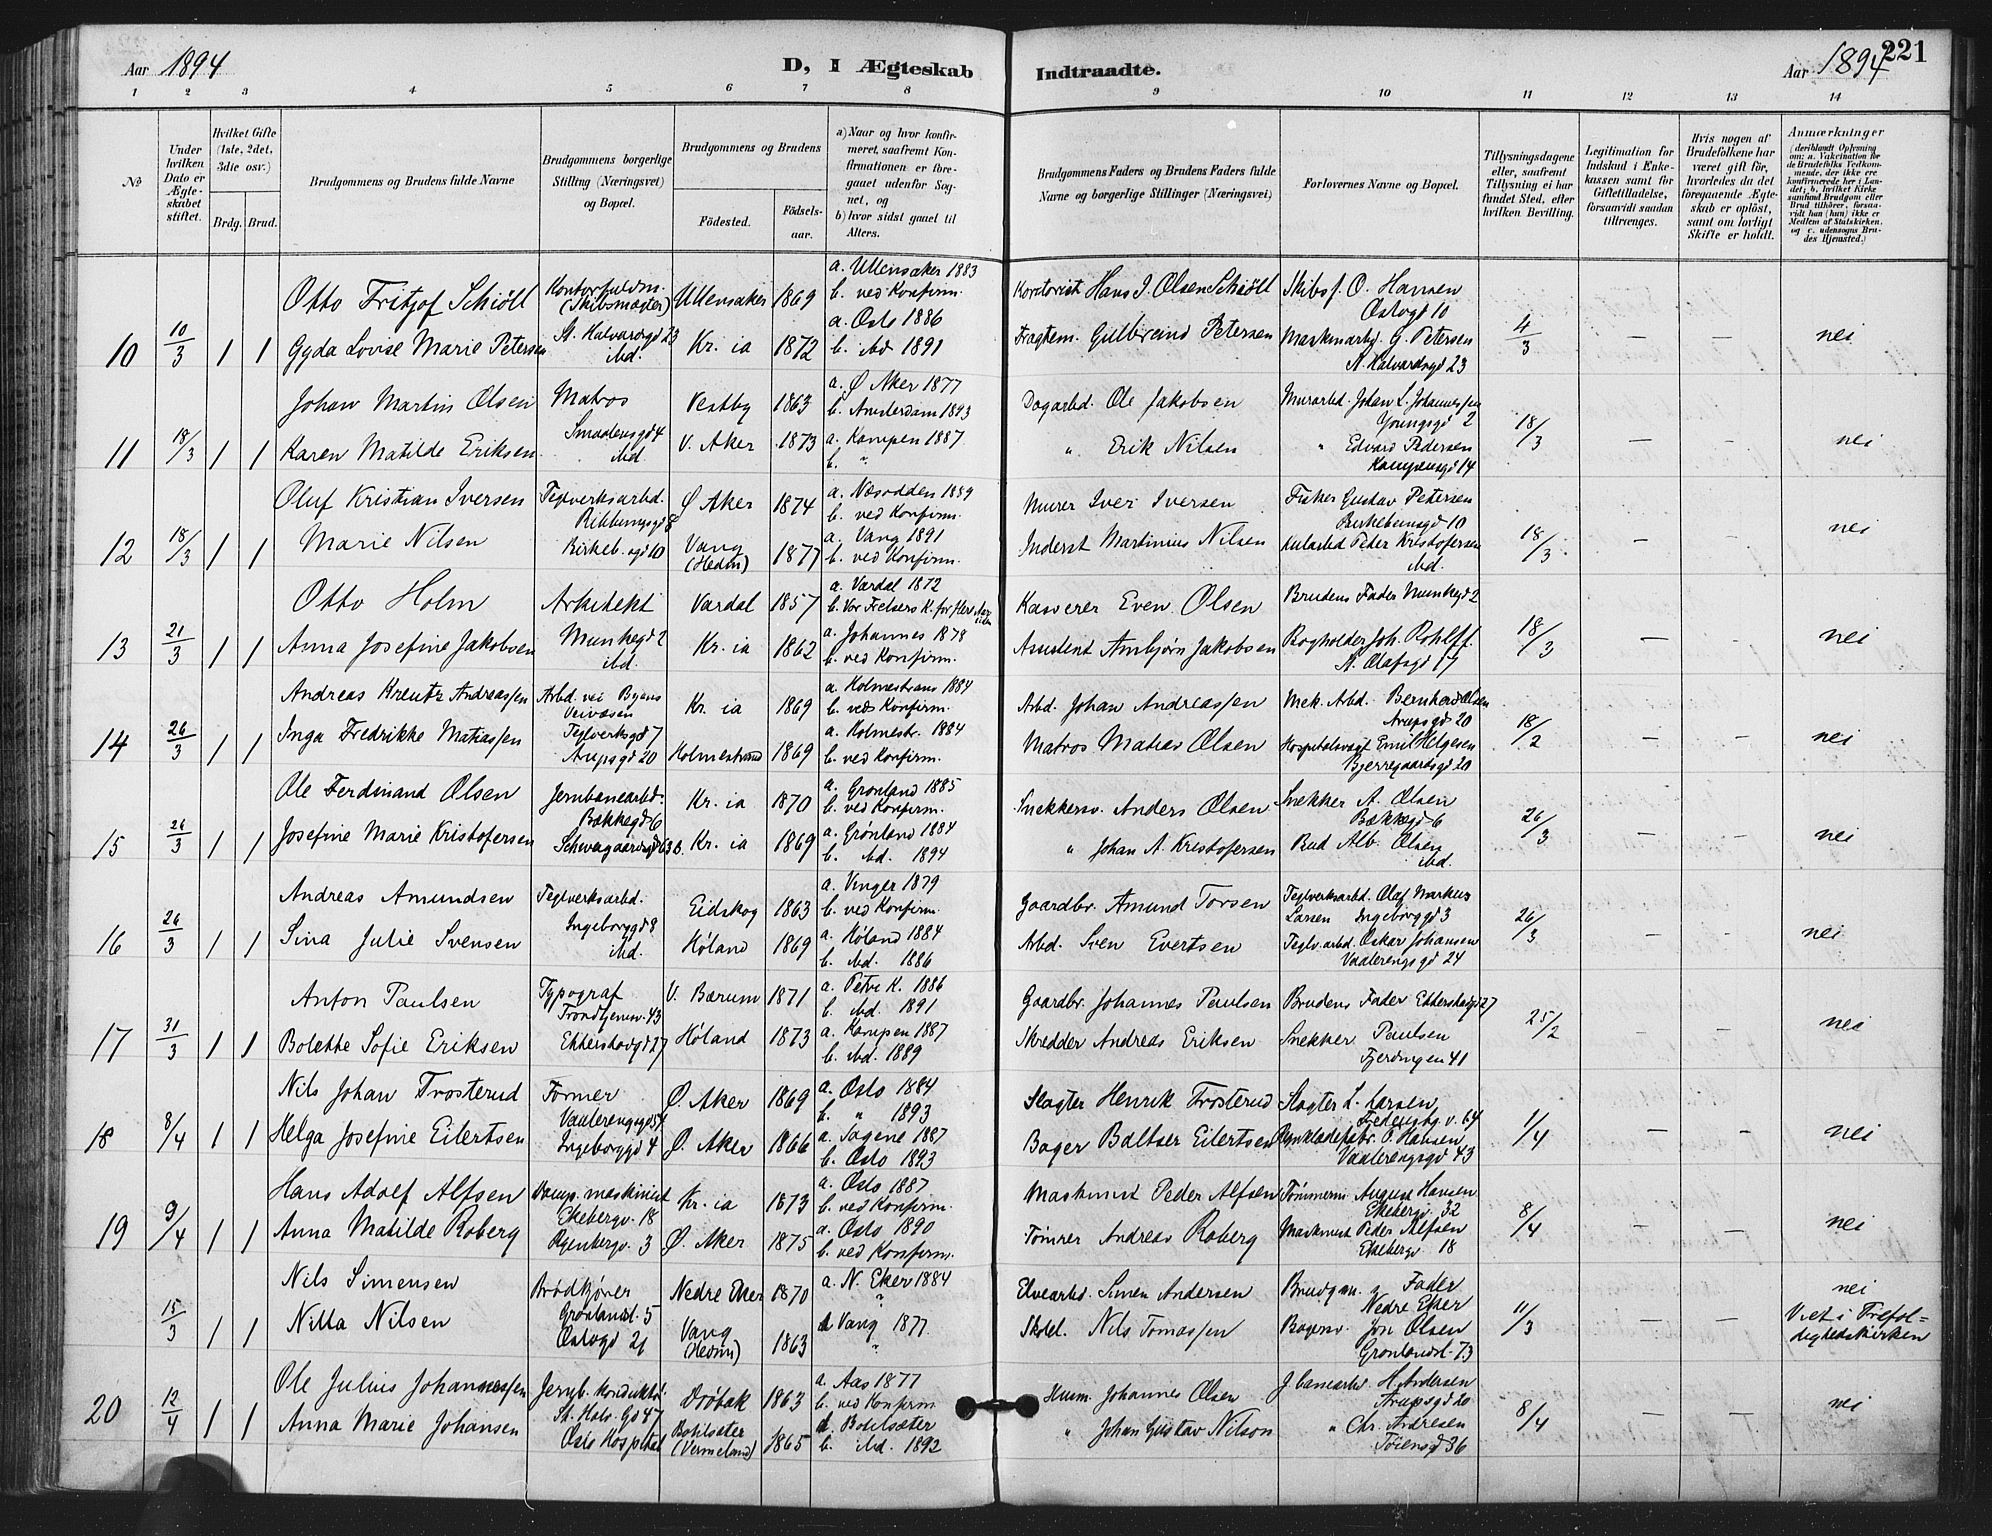 Aar 1894
D, I Ægteskab Indtraadte.
Aar 1894
221
1 2 3 4 5 6 7 8 9 10 11 12 13 14
№
Under hvilken Dato er Ægteskabet stiftet.
Hvilket Gifte (1ste, 2det, 3die osv.)
Brdg. Brud.
Brudgommens og Brudens fulde Navne
Brudgommens borgerlige Stilling (Næringsvei) og Bopæl.
Brudgommens og Brudens
Fødested. Fødselsaar.
a) Naar og hvor konfirmeret, saafremt Konfirmationen er foregaaet udenfor Sognet, og
b) hvor sidst gaaet til Alters.
Brudgommens Faders og Brudens Faders fulde Navne og borgerlige Stillinger (Næringsvei)
Forlovernes Navne og Bopæl.
Tillysningsdagene eller, saafremt Tillysning ei har fundet Sted, efter hvilken Bevilling.
Legitimation for Indskud i Enkekassen samt for Giftetilladelse, forsaavidt saadan tiltrænges.
Hvis nogen af Brudefolkene har været gift før, hvorledes da det foregaaende Ægteskab er opløst, samt om lovligt Skifte er holdt.
Anmærkninger (deriblandt Oplysning om: a. Vakcination for de Brudefolks Vedkommende, der ikke ere konfirmerede her i Landet; b. hvilket Kirkesamfund Brudgom eller Brud tilhører, forsaavidt han (hun) ikke er Medlem af Statskirken, og c. udensogns Brudes Hjemsted.)
Otto Fritjof Schiøll Kontorfuldm. (Skibsmægler) Ullensaker 1869 a. Ullensaker 1883 b. ved Konfirm. Kontorist Hans J. Olsen Schiøll Skibsf. O. Hansen Oslogd 10
10 10/3 1 1 Gyda Lovise Marie Petersen St. Halvardsgd 23 ibid. Kr.ia 1872 a. Oslo 1886 b. ibid 1891 Fragtem. Gulbrand Petersen Maskinarbd. G. Petersen St. Halvardsgd 23 4/3 — — nei
Johan Martin Olsen Matros Vestby 1863 a. Ø Aker 1877 b. Amsterdam 1893 Dagarbd. Ole Jakobsen Murarbd. Johan L. Johannessen Youngsgd 2
11 18/3 1 1 Karen Matilde Eriksen Smaalensgd 4 ibid. V. Aker 1873 a. Kampen 1887 b. " " Erik Nilsen " Edvard Pedersen Kampensgd 14 18/3 — — nei
Oluf Kristian Iversen Teglverksarbd. Ribbungsgd 8 Ø Aker 1874 a. Næsodden 1889 b. ved Konfirm. Murer Iver Iversen Fisker Gustav Petersen Birkebeinsgd 10
12 18/3 1 1 Marie Nilsen Birkeb.sgd 10 Vang (Hedm) 1877 a. Vang 1891 b. ved Konfirm. Inderst Martinius Nilsen Kularbd Peder Kristofersen ibid. 18/3 — — nei
Otto Holm Arkitekt Vardal 1857 a. Vardal 1872 b. Vor Frelsers K. for flere Aar siden Kasserer Even Olsen Brudens Fader Munkegd 2
13 21/3 1 1 Anna Josefine Jakobsen Munkegd 2 ibid. Kr.ia 1862 a. Johannes 1878 b. ved Konfirm. Assistent Arnbjørn Jakobsen Bogholder Joh. Rohlff. St. Olafsgd 17 18/3 — — nei
Andreas Kreutz Andreassen Arbd. ved Byens Veivæsen Kr.ia 1869 a. Holmestrand 1884 b. ved Konfirm. Arbd. Johan Andreassen Mek. Arbd. Bernhard Olsen Arupsgd 20
14 26/3 1 1 Inga Fredrikke Matiassen Teglverksgd 7 Arupsgd 20 Holmestrand 1869 a. Holmestr. 1884 b. ved Konfirm. Matros Matias Olsen Hospitalsvagt Emil Helgesen Bjerregaardsgd 20 18/2 — — nei
Ole Ferdinand Olsen Jernbanearbd. Bækkegd 6 Kr.ia 1870 a. Grønland 1885 b. ved Konfirm. Snekkersv. Anders Olsen Snekker A. Olsen Bækkegd 6
15 26/3 1 1 Josefine Marie Kristofersen Schweigaardsgd 63 B. Kr.ia 1869 a. Grønland 1884 b. ibid. 1894 " Johan A. Kristofersen Bud Alb. Olsen ibid. 26/3 — — nei
Andreas Amundsen Teglverksarbd. Eidskog 1863 a. Vinger 1879 b. ved Konfirm. Gaardbr. Amund Torsen Teglverksarbd. Olaf Markus Larsen Ingeborggd 3
16 26/3 1 1 Sina Julie Svensen Ingeborggd 8 ibid. Høland 1869 a. Høland 1884 b. ibid. 1886 Arbd. Sven Evertsen Teglv.arbd. Oskar Johansen Vaalerengsgd 24 26/3 — — nei
Anton Paulsen Typograf Trondhjemsv. 43 V. Bærum 1871 a. Petri K. 1886 b. ibid. 1891 Gaardbr. Johannes Paulsen Brudens Fader Ekkersbergd 27
17 31/3 1 1 Bolette Sofie Eriksen Høland 1873 a. Kampen 1887 b. ibid. 1889 Skredder Andreas Eriksen Snekker Paulsen Fjerdingen 41 25/2 — — nei
Nils Johan Trosterud Former Vaalerengsgd 54 Ø. Aker 1869 a. Oslo 1884 b. " 1893 Slagter Henrik Trosterud Slagter L. Larsen Fredensbg. v. 64
18 8/4 1 1 Helga Josefine Eilertsen Ingeborggd 4 Ø. Aker 1866 a. Sagene 1887 b. Oslo 1893 Bager Baltser Eilertsen P. Hansen Vaalerengsgd 43 1/4 — — nei
Hans Adolf Alfsen Damp.maskinist Ekebergv. 18 Kr.ia 1873 a. Oslo 1887 b. ved Konfirm. Maskinist Peder Alfsen Tømmerm. August Hansen Ekebergv. 32
19 9/4 1 1 Anna Matilde Roberg Ryenbergv. 3 Ø. Aker 1875 a. Oslo 1890 b. ved Konfirm. Tømrer Andreas Roberg Maskinist Peder Alfsen Ekebergv 18 8/4 — — nei
Nils Simensen Brødkjører Grønlandsl. 5 Nedre Eker 1870 a. N. Eker 1884 " Elvearbd. Simen Andersen Brudgm.s Fader Nedre Eker nei
15/3 1 1 Nilla Nilsen Oslogd 21 Vang (Hedm) 1863 a Vang 1877. " Skolel. Nils Tomassen Bagersv. Jon Olsen Grønlandsl. 73 11/3 — — Viet i Trefoldighedskirken
Ole Julius Johannessen Jernb. Konduktør St. Halv. Gd 47 Drøbak 1863 a. Aas 1877 b. ved Konfirm Husm. Johannes Olsen J.banearbd. H. Andersen Arupsgd 20
20 12/4 1 1 Anna Marie Johansen Oslo Hospital (Vermeland) 1865 b. ibid. 1892 " Johan Gustav Nilson " Chr. Andresen Tøiensgd 36 8/4 — — nei